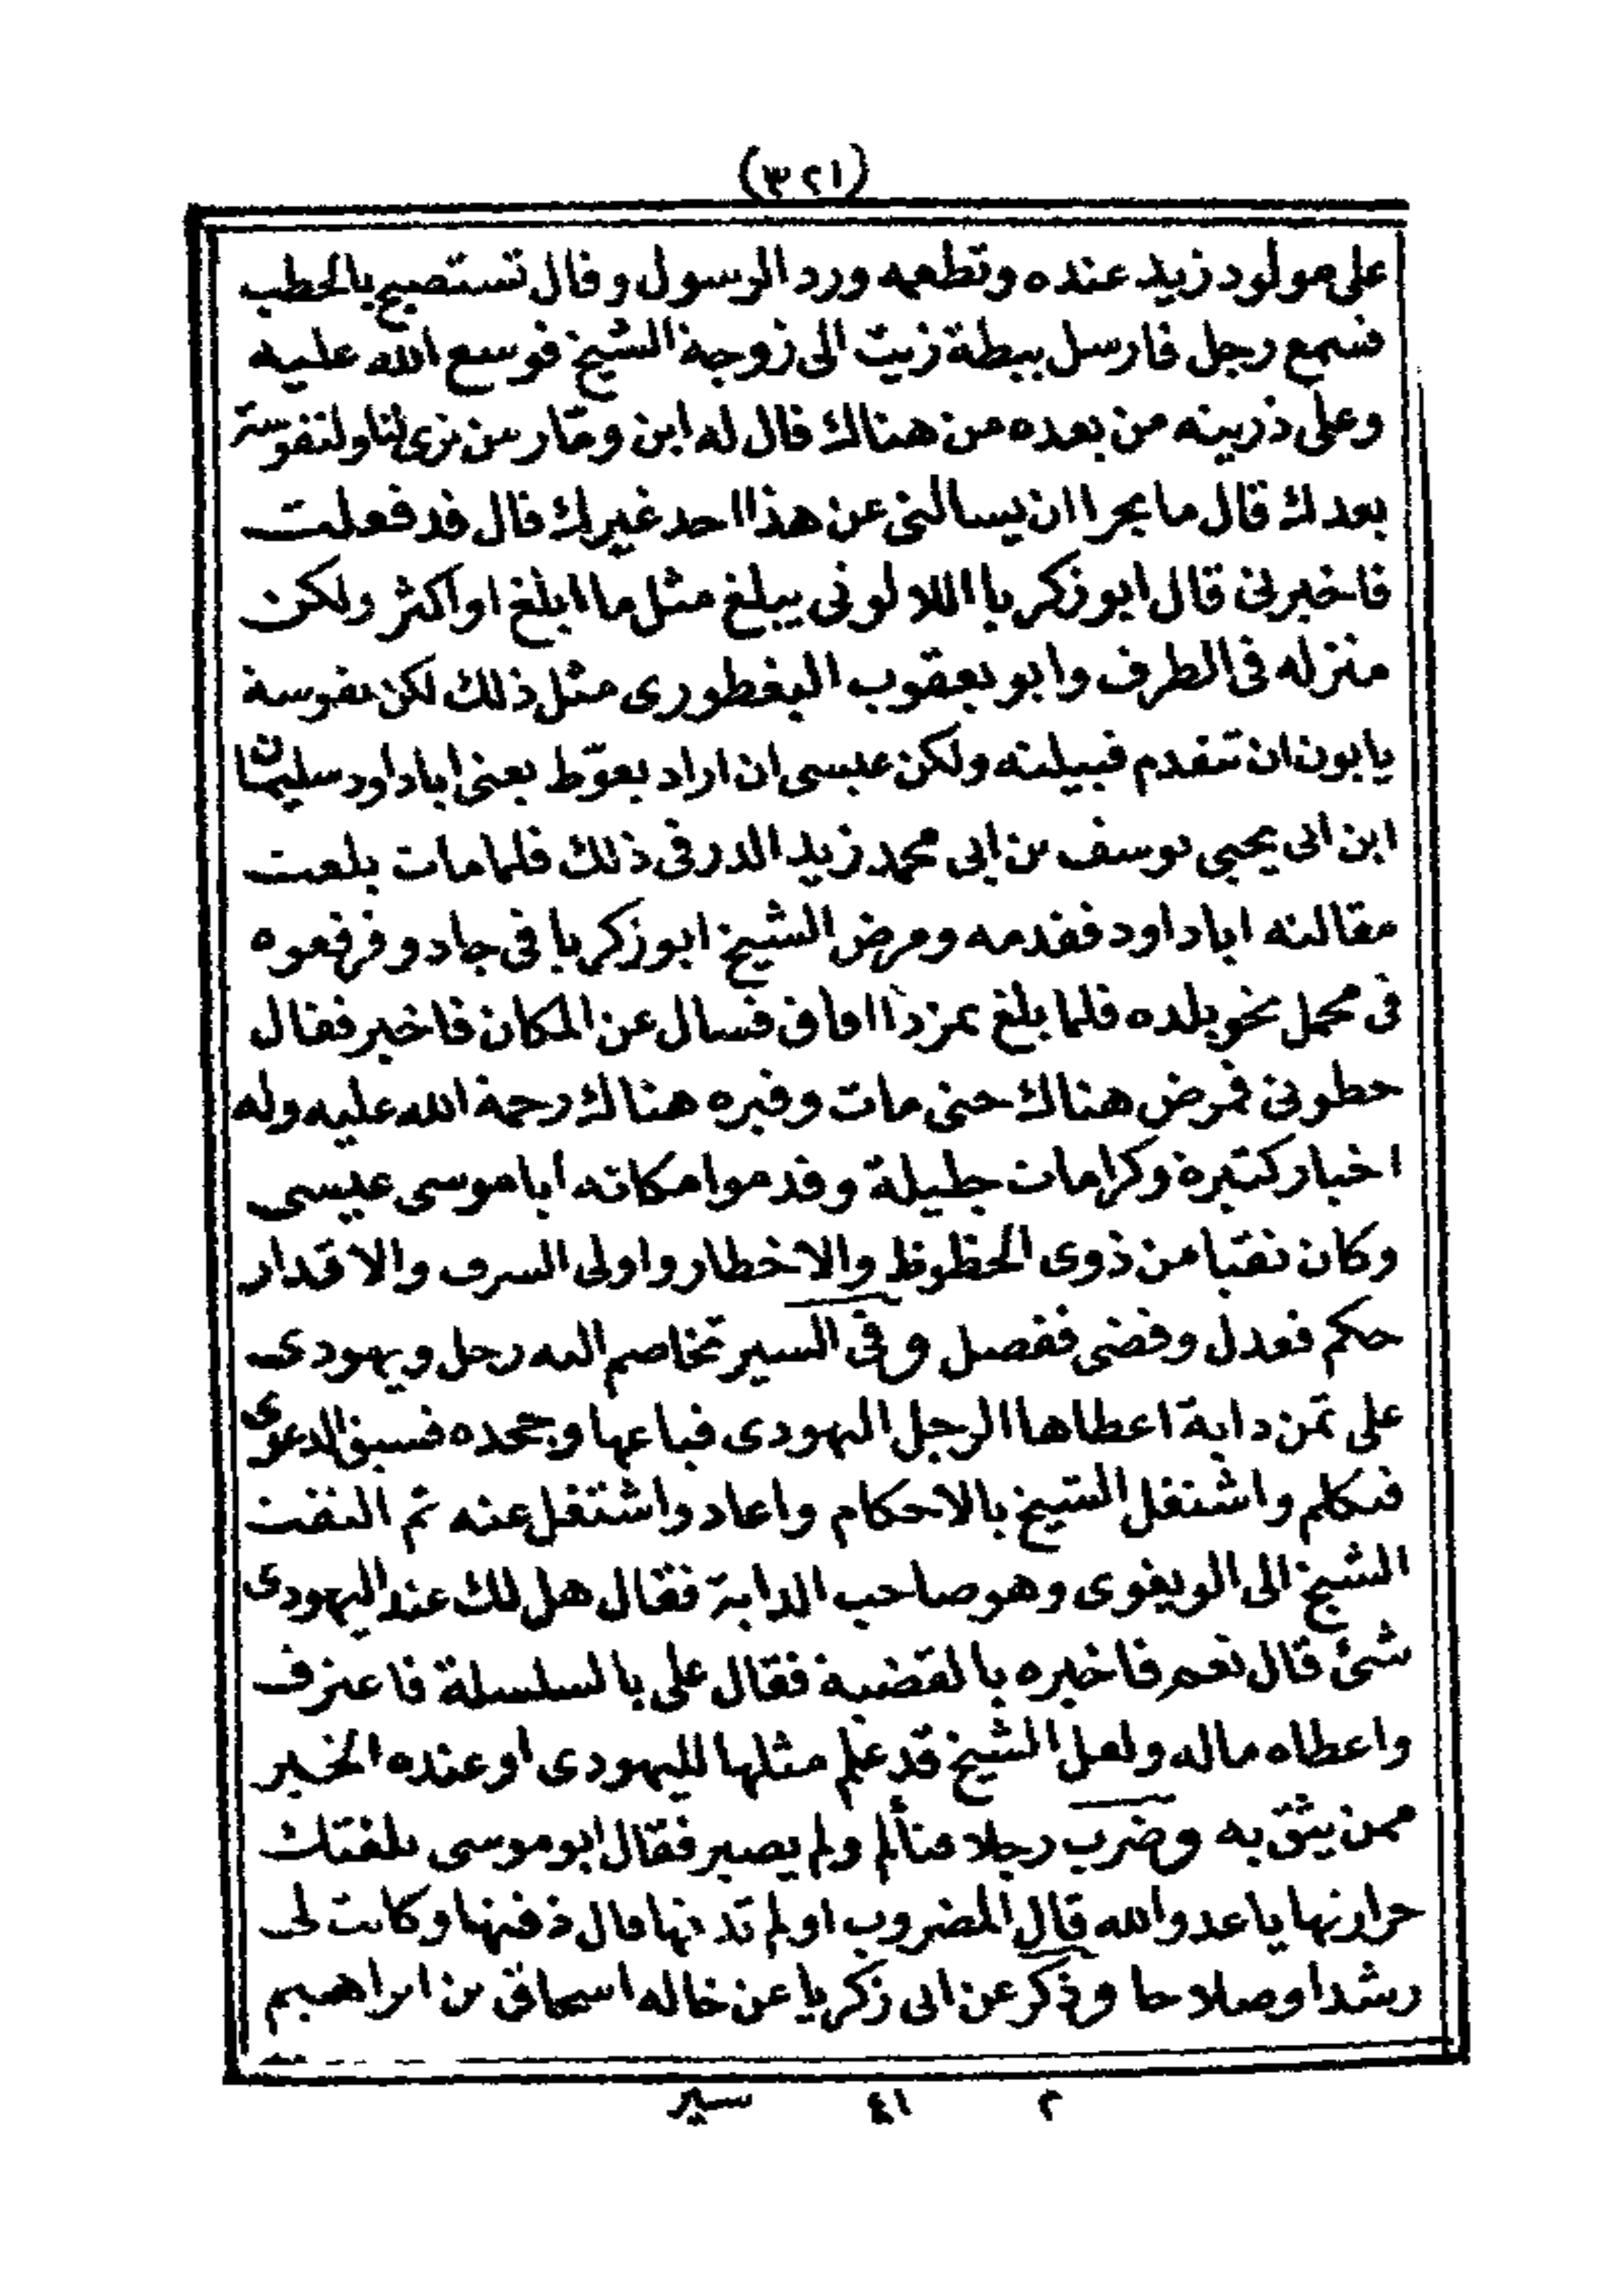 (٣٢١)
على مولود زيد عنده وتطعمه ورد الرسول وقال تستصبح بالحطب
فسمع رجل فارسل ببطة زيت الى زوجة الشيخ فوسع الله عليه
وعلى ذريته من بعده من هناك قال له ابن ومّار من ترى لنا ولنفوسة
بعدك قال ما يجرا ان يسالنى عن هذا احد غيرك قال قد فعلت
فاخبرنى قال ابو زكريا اللالوتى يبلغ مثل ما ابلغ او اكثر ولكن
منزله فى الطرف وابو يعقوب البغطورى مثل ذلك لكن نفوسة
يابون ان تتقدم قبيلته ولكن عيسى ان اراد يعوّط يعنى ابا داود سليمان
ابن ابى يحيى يوسف بن ابى محمد زيد الدرفى ذلك فلما مات بلغت
مقالته ابا داود فقدمه ومرض الشيخ ابو زكريا فى جادو فرفعوه
فى محمل نحو بلده فلما بلغ تمزدا افاق فسال عن المكان فاخبر فقال
حطونى فمرض هناك حتى مات وقبره هناك رحمة الله عليه وله
اخبار كثيرة وكرامات جليلة وقدموا مكانه ابا موسى عيسى
وكان نقيا من ذوى الحظوظ والاخطار واولى الشرف والاقدار
حكم فعدل وقضى ففصل وفى السير تخاصم اليه رجل ويهودى
على ثمن دابة اعطاها الرجل اليهودى فباعها وجحده فسبق الدعوى
فتكلم واشتغل الشيخ بالاحكام واعاد واشتغل عنه ثم التفت
الشيخ الى الويغوى وهو صاحب الدابة فقال هل لك عند اليهودى
شئ قال نعم فاخبره بالقضية فقال على بالسلسلة فاعترف
واعطاه ماله ولعل الشيخ قد علم مثلها لليهودى او عنده الخبر
ممن يثق به وضرب رجلا فتألم ولم يصبر فقال ابو موسى بلغتك
حرارتها يا عدو الله قال المضروب او لم تذقنيها قال ذقتها وكانت لى
رشدا وصلاحا وذكر عن ابى زكريا عن خاله اسحاق بن ابراهيم
٢ ٤١ سير